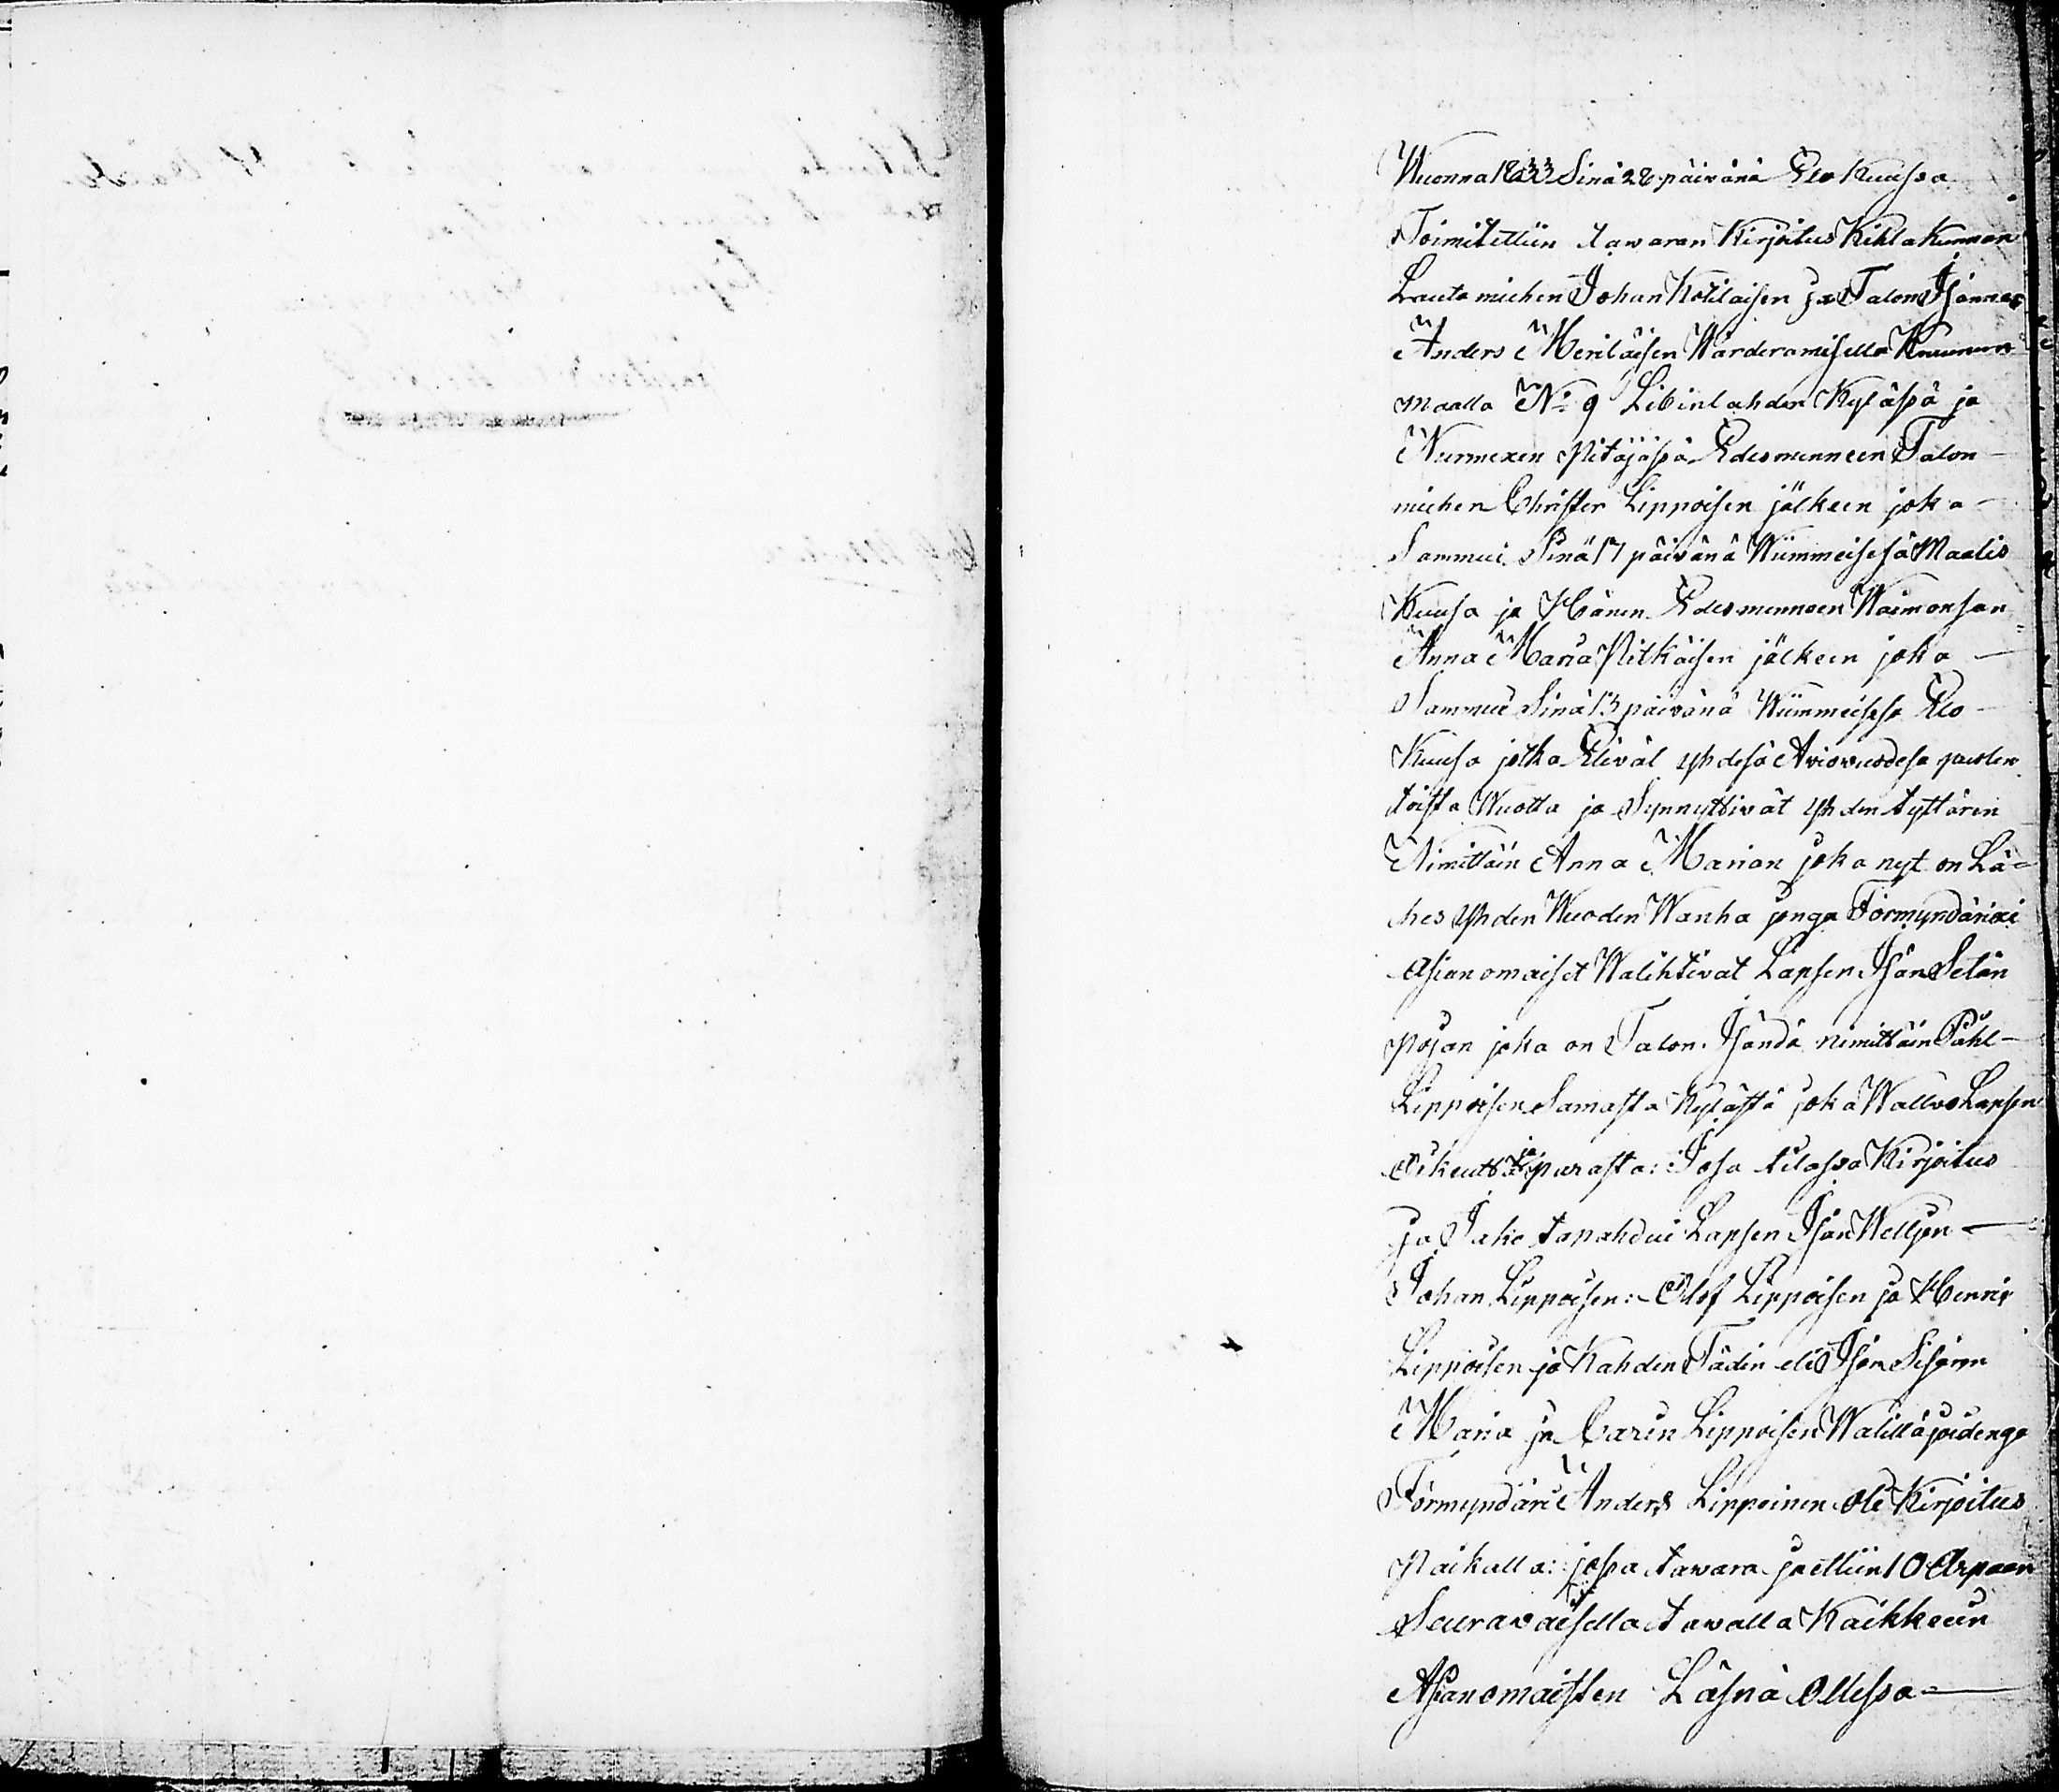 Wuonna 1833 Sinä 28 päivänä Elo Kuussa
Toimitettiin tawaran Kirjoitus Kihlakunnan
Lautamiehen Johan Kotilaisen ja Talon Isännän
Anders Meriläisen Wärderamisella Kruunun
maalla No 9 Libinlahden Kylässä ja
Nurmexen Pitäjässä Edesmenneen Talon
miehen Christer Lippoisen jälkeen joka
Sammui Sinä 17 päivänä Wiimmeisesä Maalis
Kuusa ja Hänen Edesmenneen Waimonsan
Anna Maria Pitkäisen jälkeen joka
Sammui Sinä 13 päivänä Wiimmeisesä Elo
Kuusa jotka Elivät yhdesä Aviovuodesa
toista Wuotta ja Synnyttivät yhden tyttären
Nimittäin Anna Marian joka nyt on Lä-
hes yhden Wuoden Wanha jonga Förmyndärixi
Asianomaiset Walihtivat Lapsen Isän Setän
Pojan joka on Talon Isändä nimittäin Påhl
Lippoisen Samasta Kylästä joka Walwo Lapsen
Oikeutta ja parasta: Josa tilassa Kirjoitus
ja Jako tapahdui Lapsen Isän Weljen
Johan Lippoisen: Olof Lippoisen ja Henric
Lippoisen ja Kahden Tädin eli Isän Sisaren
Maria ja Carin Lippoisen Walillä joidenga
Förmyndäri Anders Lippoinen Oli Kirjoitus
Paikalla: josa tawara jaettiin 10 Arpaan
Seurawaisella tawalla Kaikkein
Asianomaisten Läsnä Ollessa